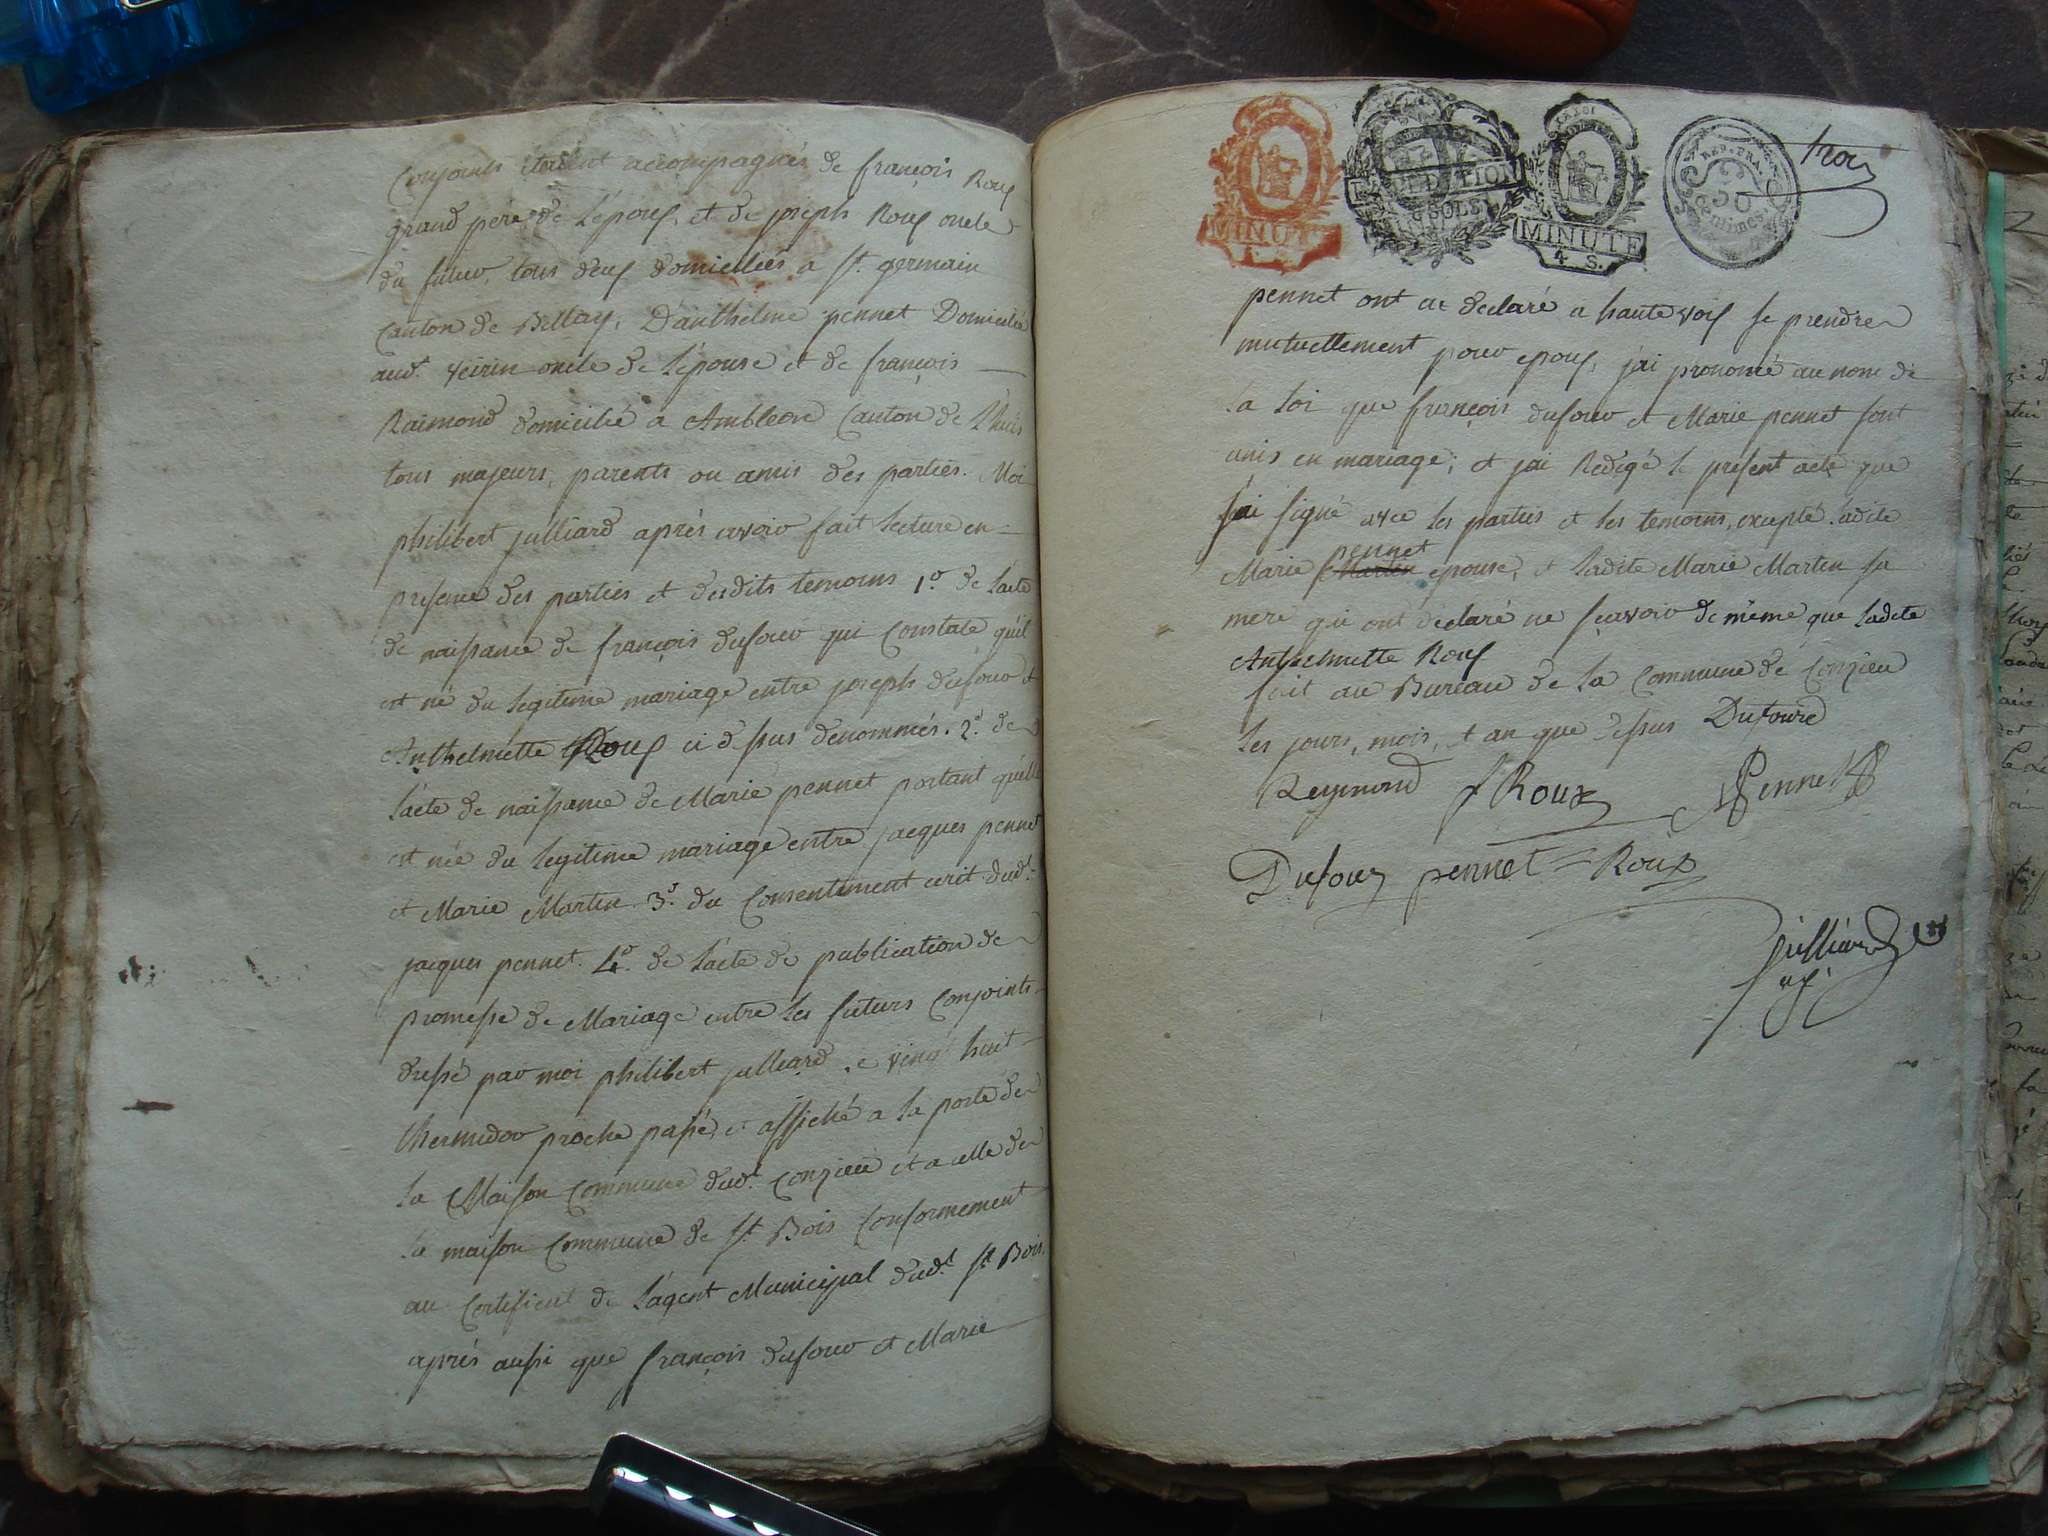 Conjoints étoient accompagnés de françois Roux
grand pere de L'epoux, et de joseph Roux oncle
du futur, tous deux domiciliés a St. germain
Canton de Bellay, D'anthelme pennet Domicilié
aud. veirin oncle de L'épouse et de françois
Raimond domicilié a Ambleon Canton de Lhuis
tous majeurs, parents ou amis des parties. Moi
philibert julliard après avoir fait Lecture en
presence des parties et desdits temoins 1.o de L'acte
de naissance de françois dufour qui Constate qu'il
est né du Legitime mariage entre joseph dufour et
Anthelmette Roux ci dessus dénommés. 2.o de
L'acte de naissance de Marie pennet portant qu'elle
est née du Legitime mariage entre jacques pennet
et Marie Martin 3.o du Consentement ecrit dud.t
jacques pennet. 4.o de L'acte de publication de
promesse de Mariage entre Les futurs Conjoints
dressé par moi philibert julliard le vingt huit
thermidor proche passé, et affiché a La porte de
La Maison Commune dud.t Conzieu et a celle de
La maison Commune de St. Bois Conformement
au Certificat de L'agent Municipal dud.t St. Bois.
après aussi que françois dufour et Marie
MINUTE
EXPEDITION
8 SOLS
MINUTE
4 S.
REP. FRA.
50
centimes
trois
pennet ont eu declaré a haute voix se prendre
mutuellement pour epoux, j'ai prononcé au nom de
La Loi que françois dufour et Marie pennet sont
unis en mariage; et j'ai Redigé Le present acte que
j'ai signé avec Les parties et Les temoins, excepté Ladite
pennet
Marie Martin epouse, et Ladite Marie Martin sa
mere qui ont declaré ne sçavoir de même que Ladite
Anthelmette Roux
fait au Bureau de La Commune de Conzieu
Les jours, mois, et an que dessus Dufoure
Reymond f Roux Pennet
Dufour pennet Roux
julliard